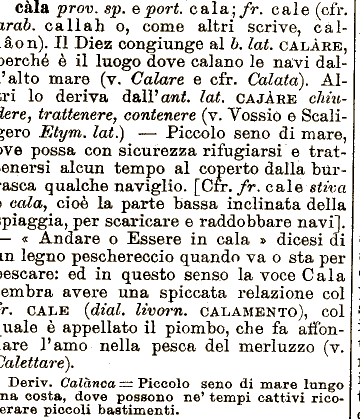 càla prov. sp. e port. cala; fr. cale (cfr.
arab. callah o, come altri scrive, cal-
lâon). Il Diez congiunge al b. lat. CALÀRE,
perché è il luogo dove calano le navi dal-
l'alto mare (v. Calare e cfr. Calata). Al-
tri lo deriva dall'ant. lat. CAJÀRE chiu-
dere, trattenere, contenere (v. Vossio e Scali-
gero Etym. lat.) — Piccolo seno di mare,
ove possa con sicurezza rifugiarsi e trat-
tenersi alcun tempo al coperto dalla bur-
rasca qualche naviglio. [Cfr. fr. cale stiva
e cala, cioè la parte bassa inclinata della
spiaggia, per scaricare e raddobbare navi].
— « Andare o Essere in cala » dicesi di
un legno peschereccio quando va o sta per
pescare: ed in questo senso la voce Cala
sembra avere una spiccata relazione col
fr. CALE (dial. livorn. CALAMENTO), col
quale è appellato il piombo, che fa affon-
dare l'amo nella pesca del merluzzo (v.
Calettare).
Deriv. Calànca = Piccolo seno di mare lungo
una costa, dove possono ne' tempi cattivi rico-
verare piccoli bastimenti.